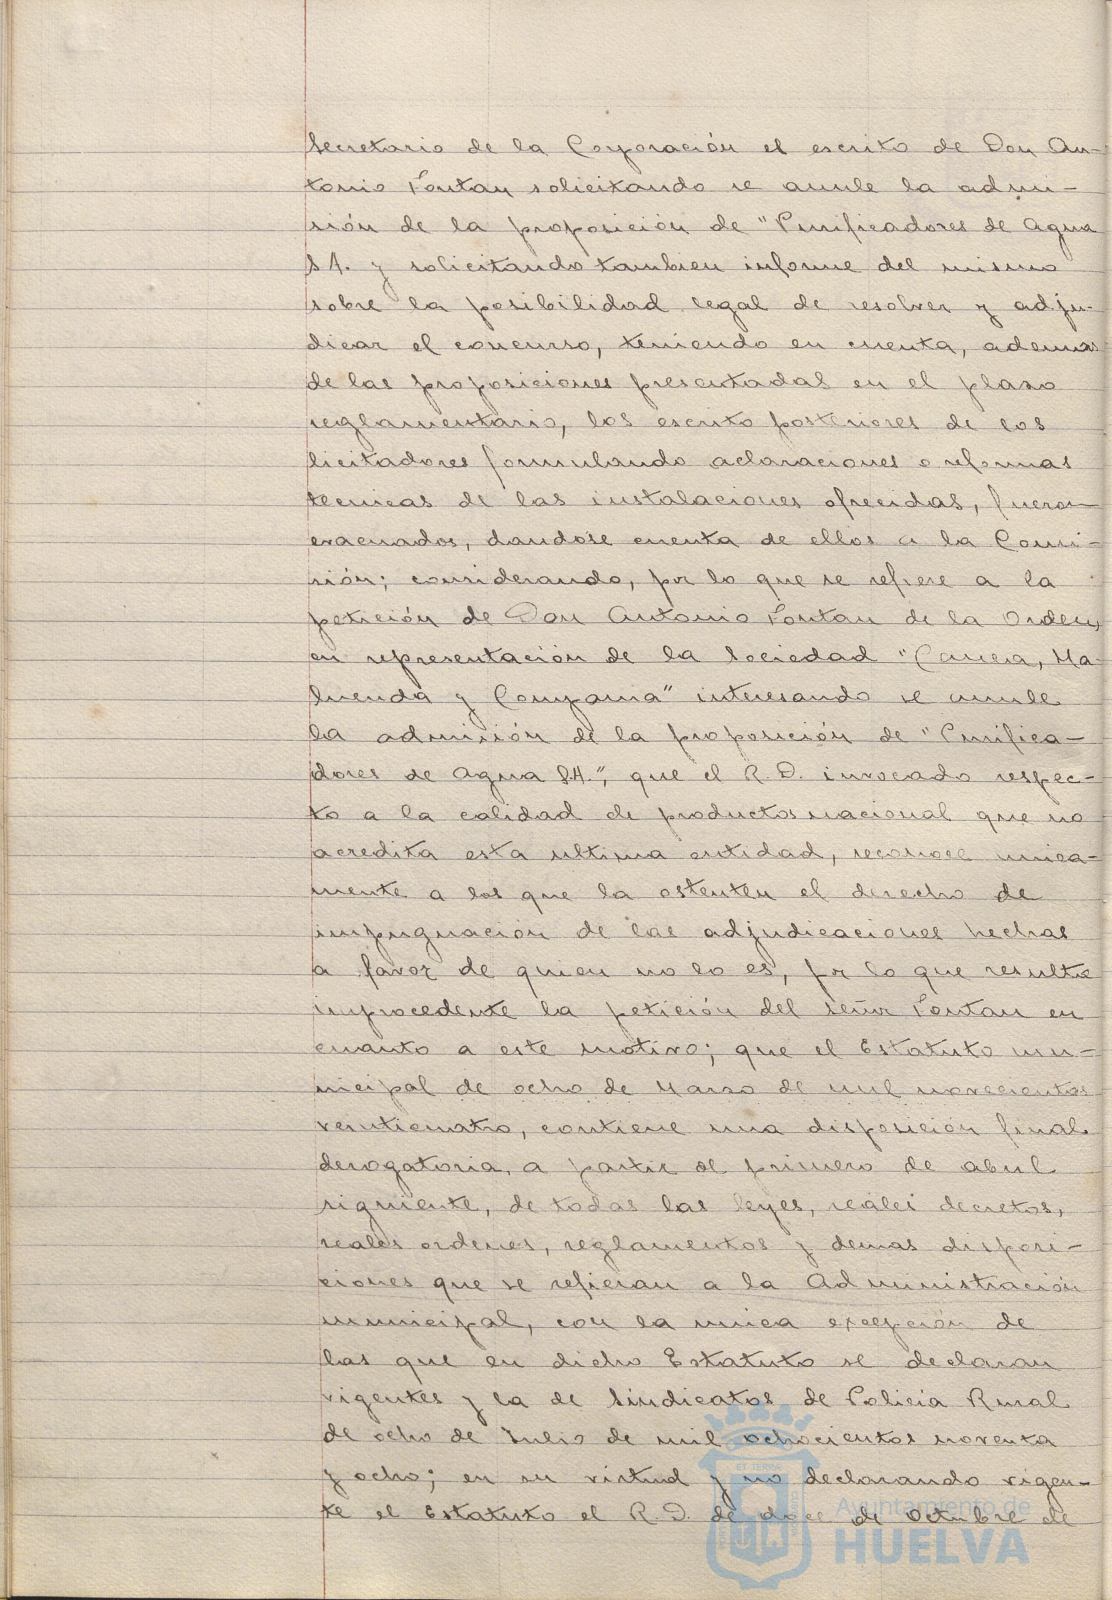 Secretario de la Corporación el escrito de Don An-
tonio Fontan solicitando se anule la admi-
sión de la proposición de "Purificadores de Agua
S A. y solicitando tambien informe del mismo
sobre la posibilidad legal de resolver y adju-
dicar el concurso, teniendo en cuenta, ademas
de las proposiciones presentadas en el plazo
reglamentario, los escrito posteriores de los
licitadores formulando aclaraciones o reformas
tecnicas de las instalaciones ofrecidas, fueron
evacuados, dandose cuenta de ellos a la Comi-
sión; considerando, por lo que se refiere a la
petición de Don Antonio Fontan de la Orden,
en representación de la Sociedad "Carrera, Ma-
luenda y Compania" interesando se anule
la admisión de la proposición de "Purifica-
dores de Agua S.A.", que el R. D. invocado respec-
to a la calidad de productos nacional que no
acredita esta ultima entidad, reconoce unica-
mente a los que la ostenten el derecho de
impugnación de las adjudicaciones hechas
a favor de quien no lo es, por lo que resulta
improcedente la petición del Señor Fontan en
cuanto a este motivo; que el Estatuto mu-
nicipal de ocho de Marzo de mil novecientos
veinticuatro, contiene una disposición final
derogatoria, a partir de primero de abril
siguiente, de todas las leyes, reales decretos,
reales ordenes, reglamentos y demas disposi-
ciones que se refieran a la Administración
municipal, con la unica excepción de
las que en dicho Estatuto se declaran
vigentes y la de Sindicatos de Policia Rural
de ocho de Julio de mil ochocientos noventa
y ocho; en su virtud y no declarando vigen-
te el Estatuto el R. D. de doce de Octubre de
Ayuntamiento de
HUELVA